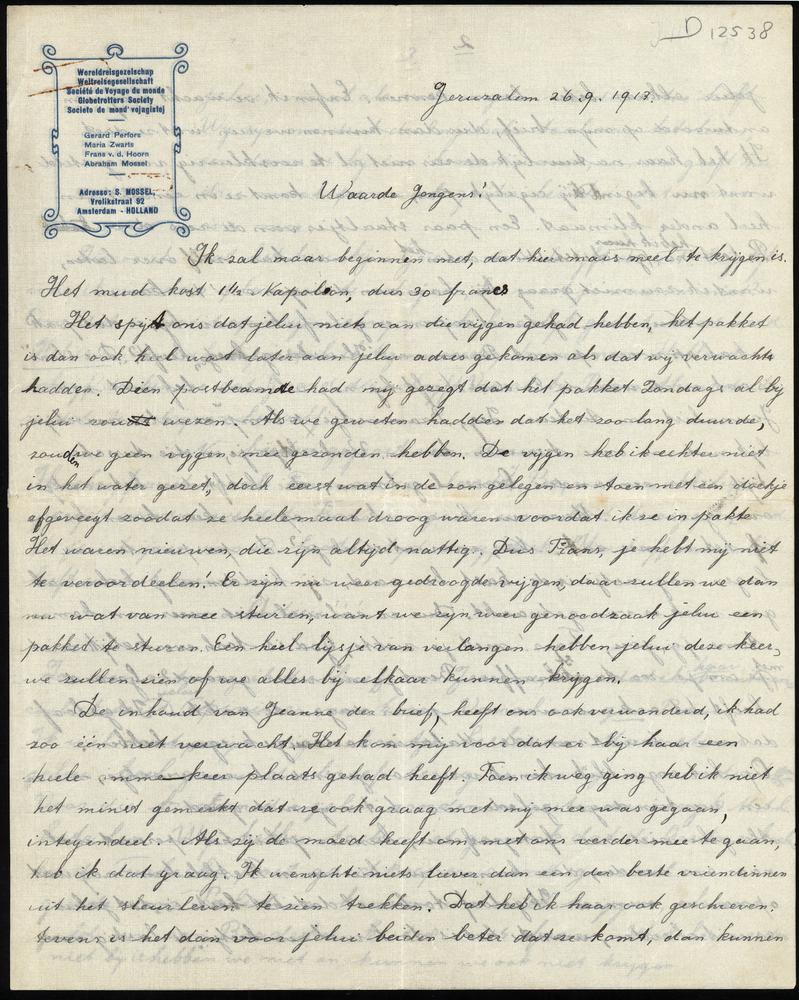 D 12538
2
Wereldreisgezelschap
Weltreisegesellschaft
Société de Voyage du monde
Globetrotters Society
Societo de mond'vojagistoj
Gerard Perfors
Maria Zwarts
Frans v. d. Hoorn
Abraham Mossel
Adresse: S. MOSSEL
Vrolikstraat 92
Amsterdam - HOLLAND
Jeruzalem 26.9.1913.
Waarde Jongens!
Ik zal maar beginnen met, dat hier mais meel te krijgen is.
Het mud kost 1½ Napoleon, dus 30 francs
Het spijt ons dat jelui niets aan die vijgen gehad hebben, het pakket
is dan ook heel wat later aan jelui adres gekomen als dat wij verwacht
hadden. Dien postbeambte had mij gezegt dat het pakket Zondags al bij
jelui zou wezen. Als we geweten hadden dat het zoo lang duurde,
zouden we geen vijgen mee gezonden hebben. De vijgen heb ik echter niet
in het water gezet, doch eerst wat in de zon gelegen en toen met een doekje
afgeveegt zoodat ze heelemaal droog waren voordat ik ze in pakte
Het waren nieuwen, die zijn altijd nattig. Dus Frans, je hebt mij niet
te veroordeelen! Er zijn nu weer gedroogde vijgen, daar zullen we dan
nu wat van mee sturen, want we zijn weer genoodzaak jelui een
pakket te sturen. Een heel lijsje van verlangen hebben jelui deze keer,
we zullen zien of we alles bij elkaar kunnen krijgen.
De inhoud van Jeanne der brief, heeft ons ook verwonderd, ik had
zoo één niet verwacht. Het kom mij voor dat er bij haar een
heele omme-keer plaats gehad heeft. Toen ik weg ging heb ik niet
het minst gemerkt dat ze ook graag met mij mee was gegaan,
integendeel. Als zij de moed heeft om met ons verder mee te gaan,
heb ik dat graag. Ik wenschte niets liever dan een der beste vriendinnen
uit het sleurleven te zien trekken. Dat heb ik haar ook geschreven.
tevens is het dan voor jelui beiden beter dat ze komt, dan kunnen